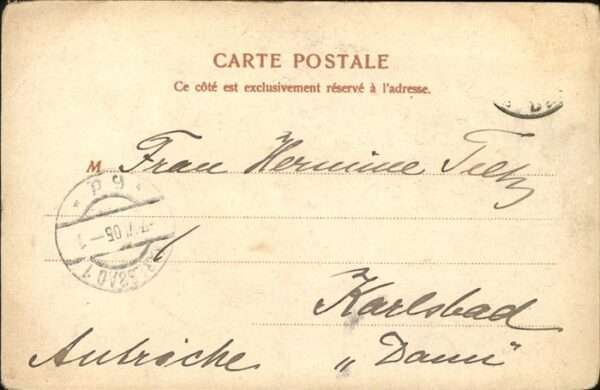 CARTE POSTALE
Ce côté est exclusivement réservé à l'adresse.
M Frau Hermine
KARLSBAD 1
05
Karlsbad
Autriche